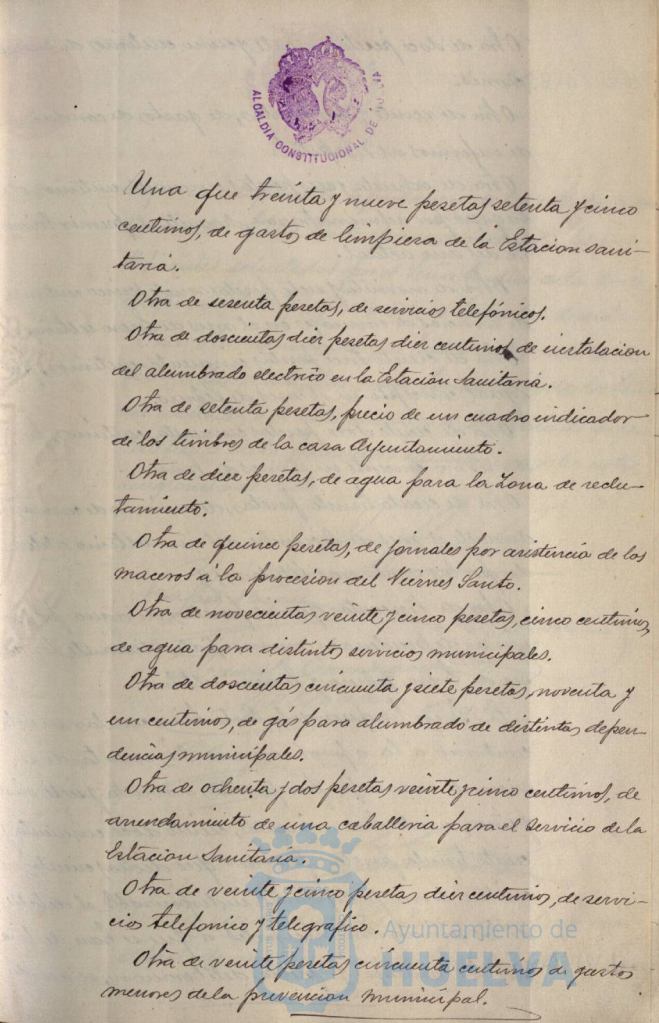 ALCALDIA CONSTITUCIONAL DE
Una que treinta y nueve pesetas setenta y cinco
centimos, de gastos de limpieza de la Estacion sani-
taria.
Otra de sesenta pesetas, de servicios telefónicos.
Otra de doscientas diez pesetas diez centimos de instalacion
del alumbrado electrico en la Estacion Sanitaria.
Otra de setenta pesetas, precio de un cuadro indicador
de los timbres de la casa Ayuntamiento.
Otra de diez pesetas, de agua para la Zona de reclu-
tamiento.
Otra de quince pesetas, de jornales por asistencia de los
maceros á la procesion del Viernes Santo.
Otra de novecientas veinte y cinco pesetas, cinco centimos
de agua para distintos servicios municipales.
Otra de doscientas cincuenta y siete pesetas, noventa y
un centimos, de gás para alumbrado de distintas depen-
dencias municipales.
Otra de ochenta y dos pesetas veinte y cinco centimos, de
arrendamiento de una caballeria para el servicio de la
Estacion Sanitaria.
Otra de veinte y cinco pesetas diez centimos, de servi-
cios telefonico y telegráfico.
Otra de veinte pesetas cincuenta centimos de gastos
menores de la prevencion municipal.
Ayuntamiento de
HUELVA